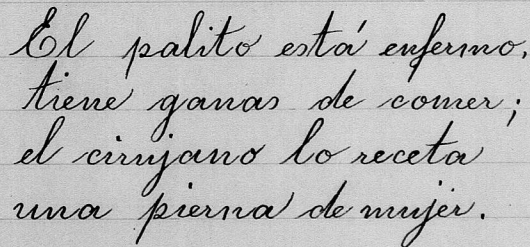 El palito está enfermo,
tiene ganas de comer;
el cirujano lo receta
una pierna de mujer.